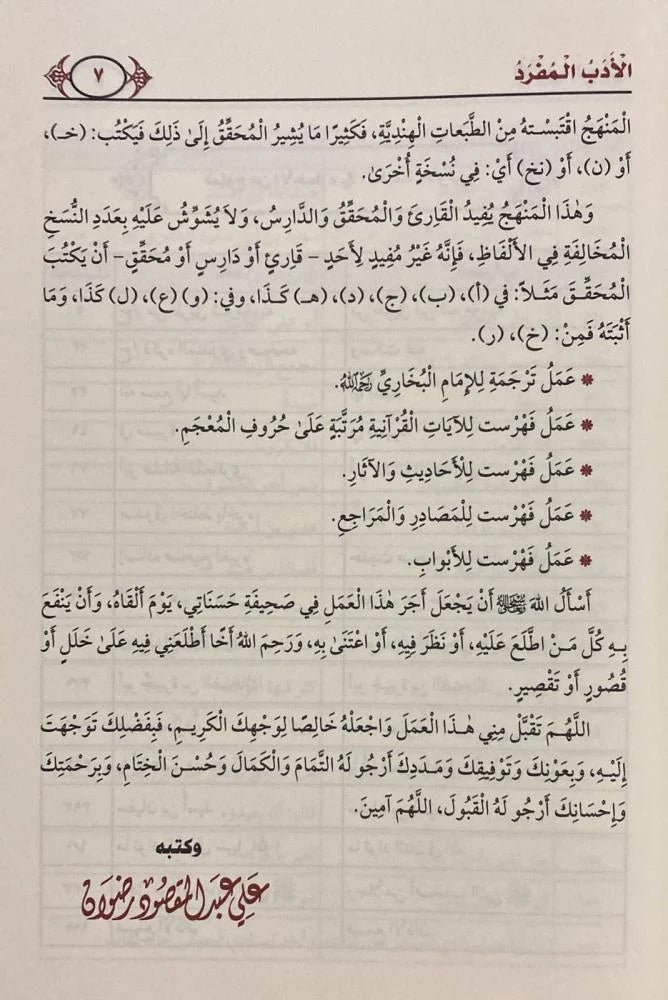 الْأَدَبُ الْمُفْرَدُ
٧
الْمَنْهَجُ اقْتَبَسْتهُ مِنْ الطَّبَعاتِ الْهِنْدِيَّةِ، فَكَثِيرًا مَا يُشِيرُ الْمُحَقِّقُ إِلَىٰ ذَلِكَ فَيَكْتُب: (خـ)،
أَوْ (ن)، أَوْ (نخ) أَيْ: فِي نُسْخَةٍ أُخْرَىٰ.
وَهَٰذَا الْمَنْهَجُ يُفِيدُ الْقَارِئَ وَالْمُحَقِّقُ وَالدَّارِسُ، وَلاَ يُشَوِّشُ عَلَيْهِ بِعَدَدِ النُّسَخِ
الْمُخَالِفَةِ فِي الْأَلْفَاظِ، فَإِنَّهُ غَيْرُ مُفِيدٍ لِأَحَدٍ – قَارِئٍ أَوْ دَارِسٍ أَوْ مُحَقِّقٍ – أَنْ يَكْتُبَ
الْمُحَقِّقَ مَثَلاً: فِي (أ)، (ب)، (ج)، (د)، (هـ) كَذَا، وفي: (و) (ع)، (ل) كَذَا، وَمَا
أَثْبَتَهُ فَمِنْ: (خ)، (ر).
* عَمَلُ تَرْجَمَةٍ لِلإِمَامِ الْبُخَارِيِّ رَحِمَهُ اللَّهُ.
* عَمَلُ فَهْرَست لِلآيَاتِ الْقُرْآنِيةِ مُرَتَّبَةٍ عَلَىٰ حُرُوفِ الْمُعْجَمِ.
* عَمَلُ فَهْرَست لِلْأَحَادِيثِ وَالآثَارِ.
* عَمَلُ فَهْرَست لِلْمَصَادِرِ وَالْمَرَاجِعِ.
* عَمَلُ فَهْرَست لِلأَبْوابِ.
أَسْأَلُ اللهَ ﷻ أَنْ يَجْعَلَ أَجَرَ هَٰذَا الْعَمَلِ فِي صَحِيفَةِ حَسَنَاتِي، يَوْمَ أَلْقَاهُ، وَأَنْ يَنْفَعَ
بِهِ كُلَّ مَنْ اطَّلَعَ عَلَيْهِ، أَوْ نَظَرَ فِيهِ، أَوْ اعْتَنَىٰ بِهِ، وَرَحِمَ اللهُ أَخًا أَطْلَعَنِي فِيهِ عَلَىٰ خَلَلٍ أَوْ
قُصُورٍ أَوْ تَقْصِيرٍ.
اللَّهُمَّ تَقَبَّلْ مِنِي هَٰذَا الْعَمَلَ وَاجْعَلْهُ خَالِصًا لِوَجْهِكَ الْكَرِيمِ، فَبِفَضْلِكَ تَوَجْهَتَ
إِلَيْهِ، وَبِعَوْنِكَ وَتَوْفِيقِكَ وَمَدَدِكَ أَرْجُو لَهُ التَّمَامَ وَالْكَمَالَ وَحُسْنَ الْخِتَامِ، وَبِرَحْمَتِكَ
وَإِحْسَانِكَ أَرْجُو لَهُ الْقَبُولَ، اللَّهُمَ آمِينَ.
وكتبه
علي عبد المقصود رضوان